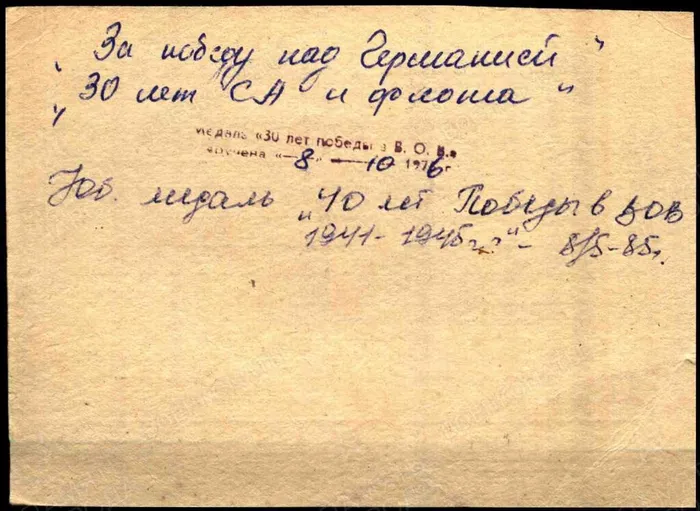 „За победу над Германией"
„30 лет СА и флота"
Медаль «30 лет победы в В. О. В.»
вручена «8» 10 1976г
Юб. медаль „40 лет Победы в ВОВ
1941-1945г.г." - 8/5-85г.